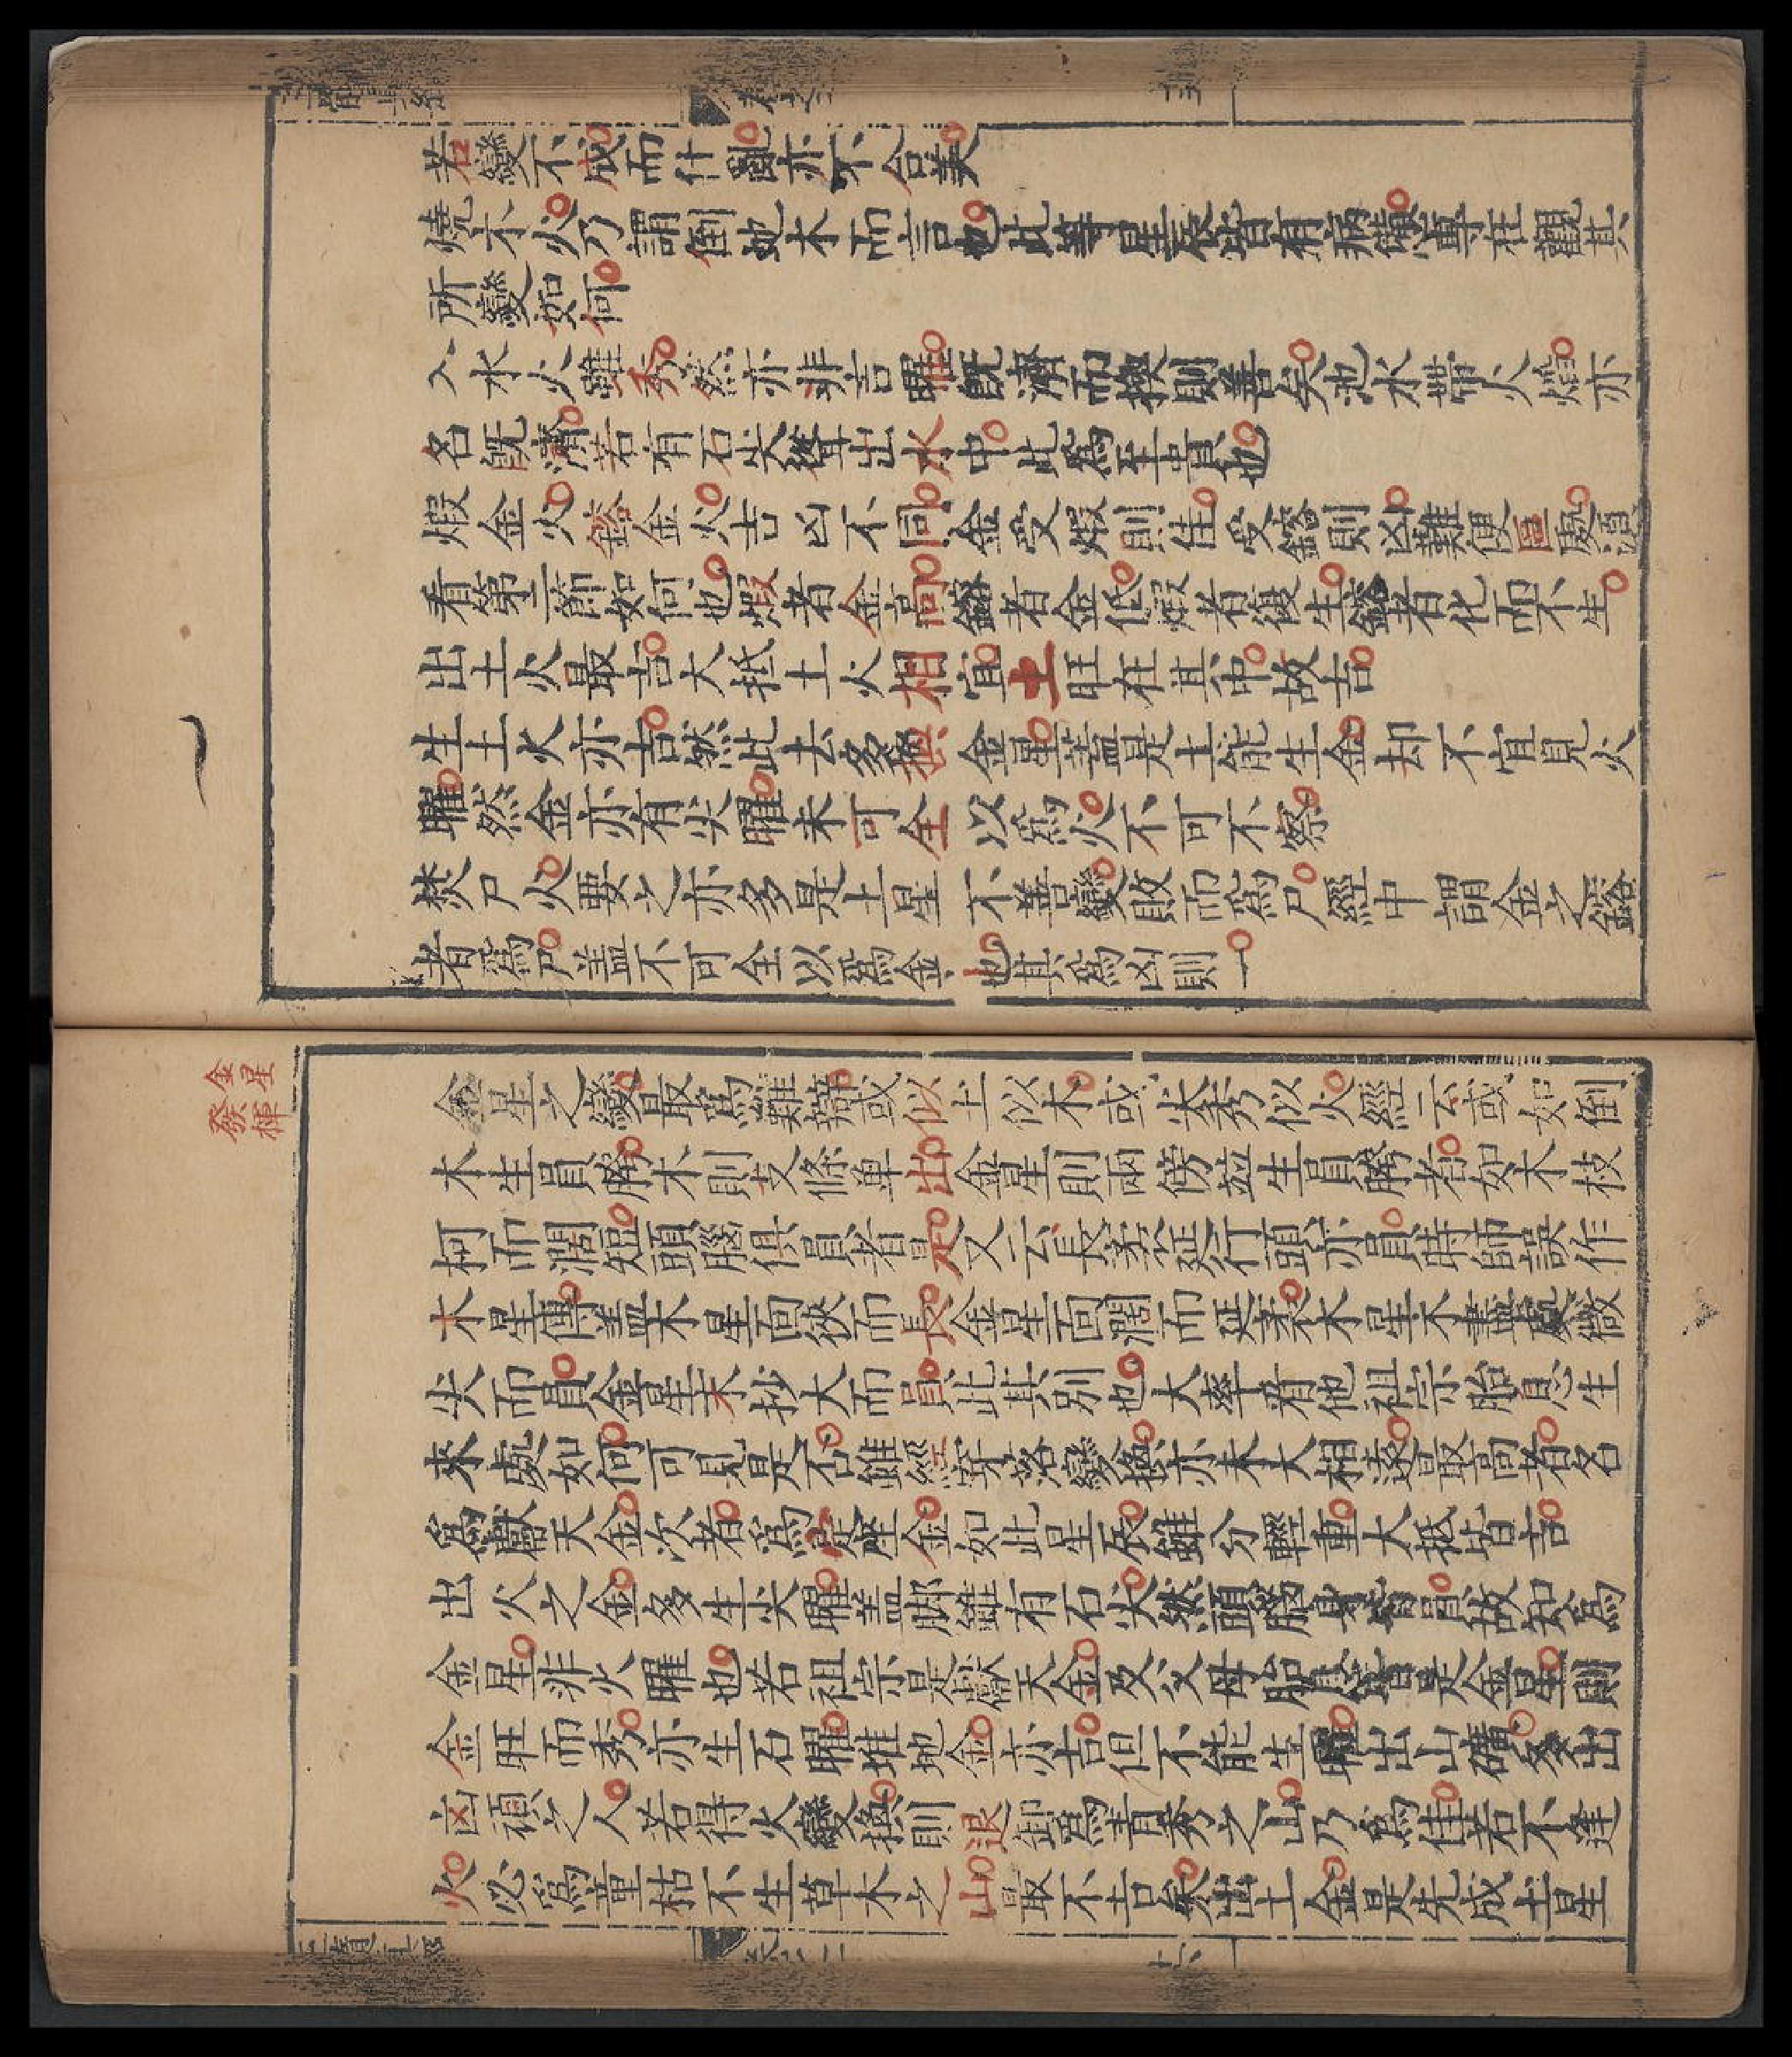 若變不成而什亂亦不合美
燒木火乃謂倒地木而言也此等星辰皆有病專在觀其
所變如何
入水火雖秀然亦非吉曜旣濟而換則善矣池水帶火燈亦
名旣濟若有石尖聳出水中此爲至貴也
煆金火鎔金火吉凶不同金受煆則佳受鎔則凶難便區處須
看第二節如何也煆者金高鎔者金低煆者復生鎔者化而不生
出土火最吉大抵土火相宜土旺在其中故吉
生土火亦吉然此去多換金星蓋是土能生金却不宜見火
曜然金亦有尖曜未可全以爲火不可不察
焚尸火要之亦多是土星不善變敗而爲尸經中謂金之鎔
者爲尸蓋不可全以爲金也其爲凶則一
金星
發揮
金星之變最爲難辯或似土似木或尖秀似火經云或如倒
木生員腳木則支條單出金星則兩傍並生員腳者如木枝
柯而濶短頭腦俱員者是又云長柔延行頭亦員時師誤作
木星傳蓋木星面狹而長金星面濶而延柔木星木盡處微
尖而員金星木抄大而員此其別也大率看他祖宗胎息生
來處如何可見是否雖經穿落變換亦未大相遠最高者名
爲獻天金次者爲是座金如此星辰雖分輕重大抵皆吉
出火之金多生尖曜蓋脚雖有石尖然頭腦身皆員故知爲
金星非火曜也若祖宗是獻天金及父母胎息皆是金星則
金旺而秀亦生石曜堆地金亦吉但不能生曜出山礦多出
凶頑之人若得火變換則退卸爲青秀之山乃爲佳若不逢
火必爲童枯不生草木之山最不吉矣出土金是先成土星